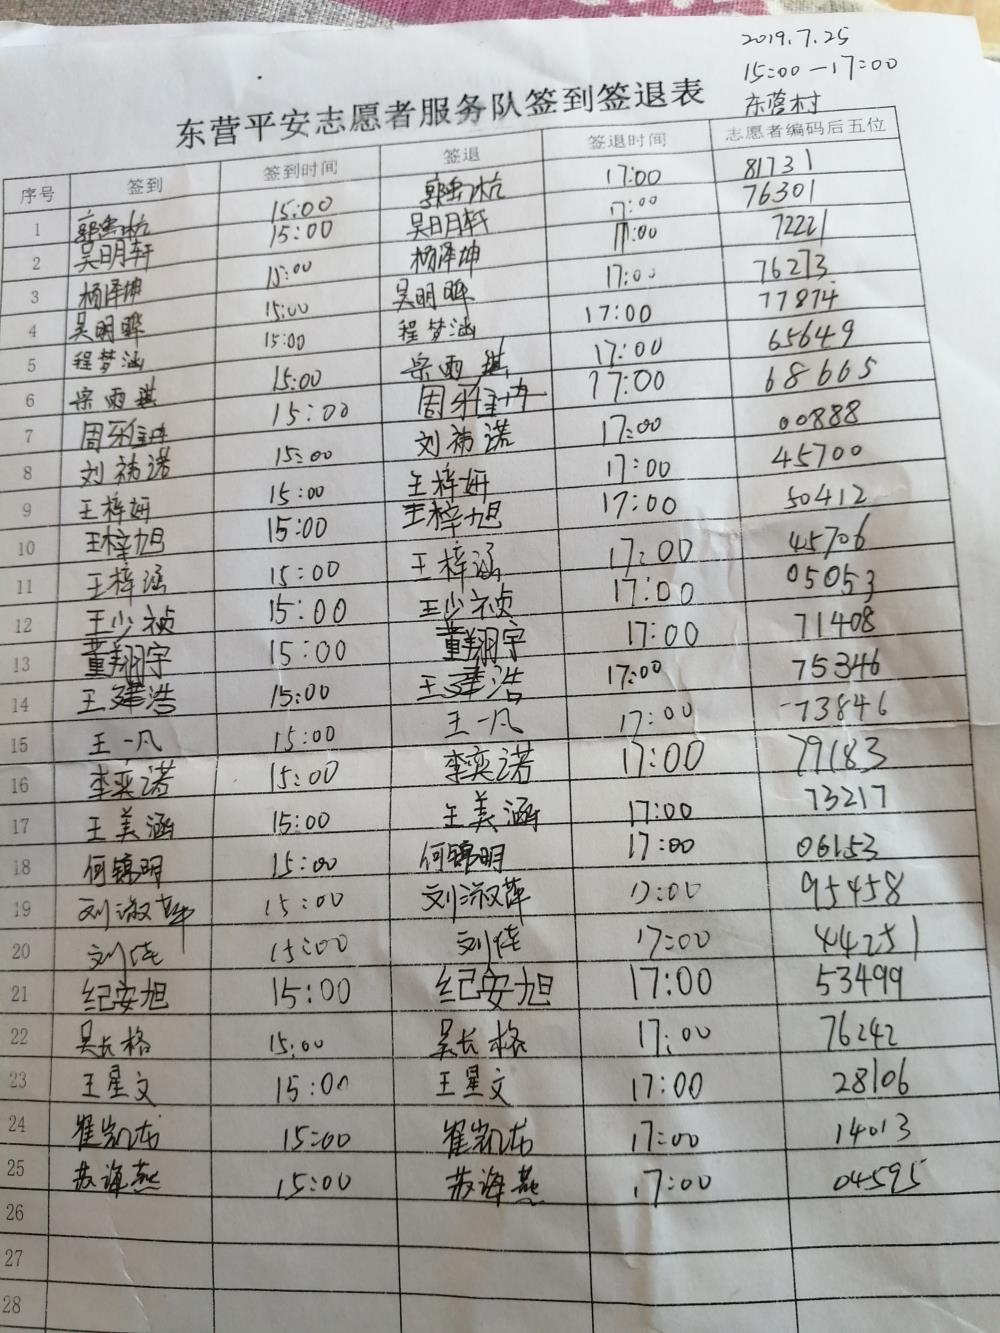 2019.7.25
15:00—17:00
东营村
东营平安志愿者服务队签到签退表
序号 签到 签到时间 签退 签退时间 志愿者编码后五位
1 15:00 17:00 81731
2 吴明轩 15:00 吴明轩 17:00 76301
3 杨泽坤 15:00 杨泽坤 17:00 72221
4 吴明晔 15:00 吴明晔 17:00 76273
5 程梦涵 15:00 程梦涵 17:00 77874
6 雨琪 15:00 雨琪 17:00 65649
7 周 15:00 周 17:00 68665
8 刘祎诺 15:00 刘祎诺 17:00 00888
9 王梓妍 15:00 王梓妍 17:00 45700
10 王梓旭 15:00 王梓旭 17:00 50412
11 王梓涵 15:00 王梓涵 17:00 45706
12 王少祯 15:00 王少祯 17:00 05053
13 董翔宇 15:00 董翔宇 17:00 71408
14 王建浩 15:00 王建浩 17:00 75346
15 王一凡 15:00 王一凡 17:00 73846
16 李奕诺 15:00 李奕诺 17:00 79183
17 王美涵 15:00 王美涵 17:00 73217
18 何锦明 15:00 何锦明 17:00 06153
19 刘淑萍 15:00 刘淑萍 17:00 95458
20 刘佳 15:00 刘佳 17:00 44251
21 纪安旭 15:00 纪安旭 17:00 53499
22 吴长格 15:00 吴长格 17:00 76242
23 王星文 15:00 王星文 17:00 28106
24 崔凯龙 15:00 崔凯龙 17:00 14013
25 苏海燕 15:00 苏海燕 17:00 04595
26
27
28